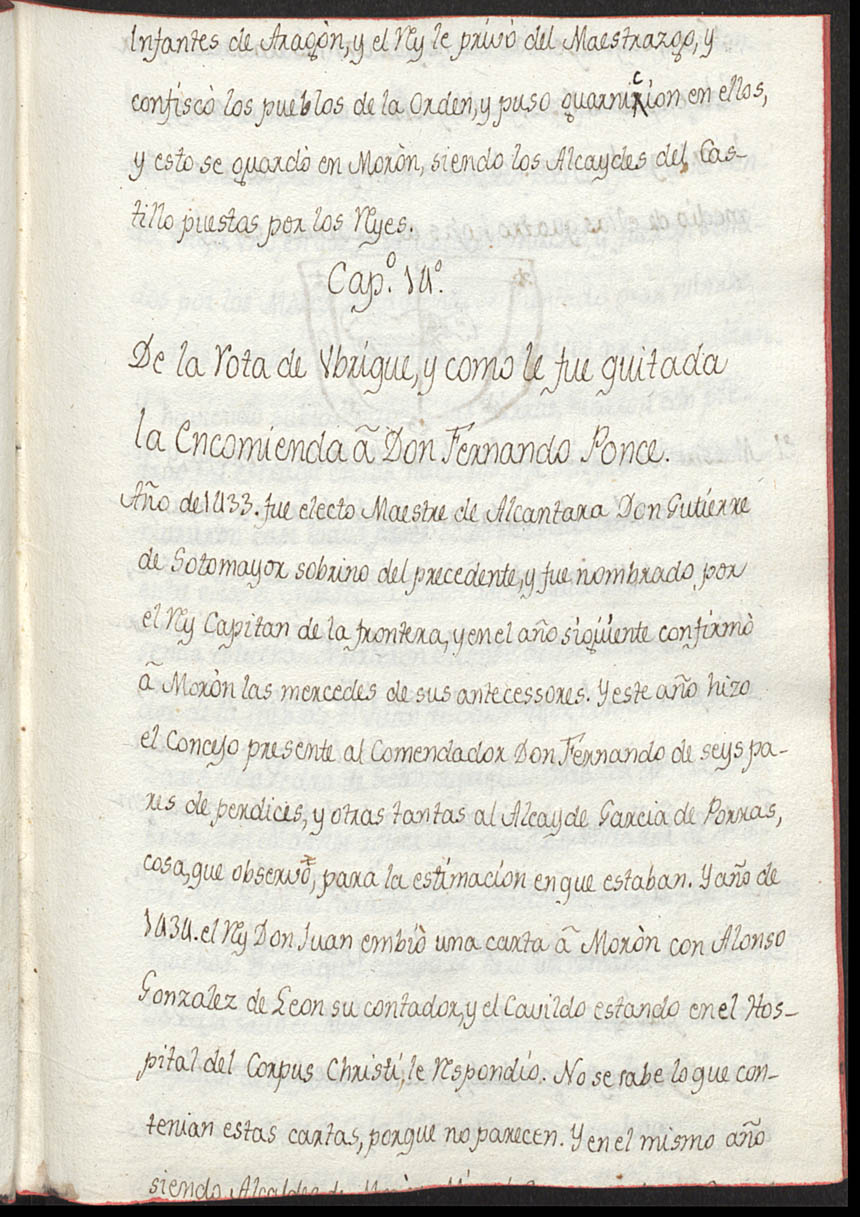 Infantes de Aragòn, y el Rey le privò del Maestrazgo, y
confiscò los pueblos de la Orden, y puso guarnicion en ellos,
y esto se guardò en Moròn, siendo los Alcaydes del Cas-
tillo puestas por los Reyes.
Cap.º 14º.
De la Rota de Ybrique, y como le fue quitada
la Encomienda ã Don Fernando Ponce.
Año de 1433. fue electo Maestre de Alcantara Don Gutierre
de Sotomayor sobrino del precedente, y fue nombrado por
el Rey Capitan de la frontera, y en el año siguiente confirmò
ã Moròn las mercedes de sus antecessores. Y este año hizo
el Concejo presente al Comendador Don Fernando de seys pa-
res de perdices, y otras tantas al Alcayde Garcia de Porras,
cosa, que observo, para la estimacion en que estaban. Y año de
1434. el Rey Don Juan embiò una carta ã Moròn con Alonso
Gonzalez de Leon su contador, y el Cavildo estando en el Hos-
pital del Corpus Christi, le respondio. No se sabe lo que con-
tenian estas cartas, porque no parecen. Y en el mismo año
siendo Alcaldes de Moròn